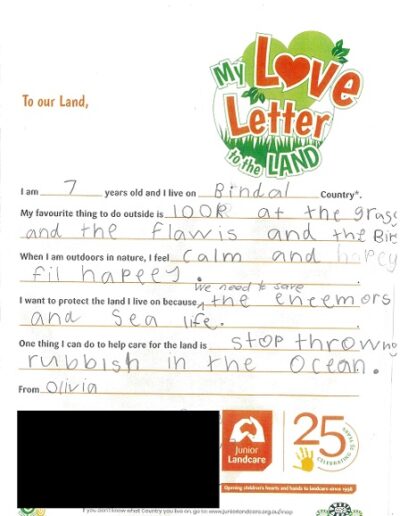 My Love
Letter
to the LAND
To our Land,
I am 7 years old and I live on Bindal Country*.
My favourite thing to do outside is look at the grass
and the flawis and the Bir
When I am outdoors in nature, I feel calm and hapey
fil hapeey.
we need to save
I want to protect the land I live on because the eneemors
and sea life.
One thing I can do to help care for the land is stop throwng
rubbish in the Ocean.
From Olivia
Junior
Landcare
25 YEARS
CELEBRATING
Opening children's hearts and hands to landcare since 1998
If you don't know what Country you live on, go to www.juniorlandcare.org.au/map